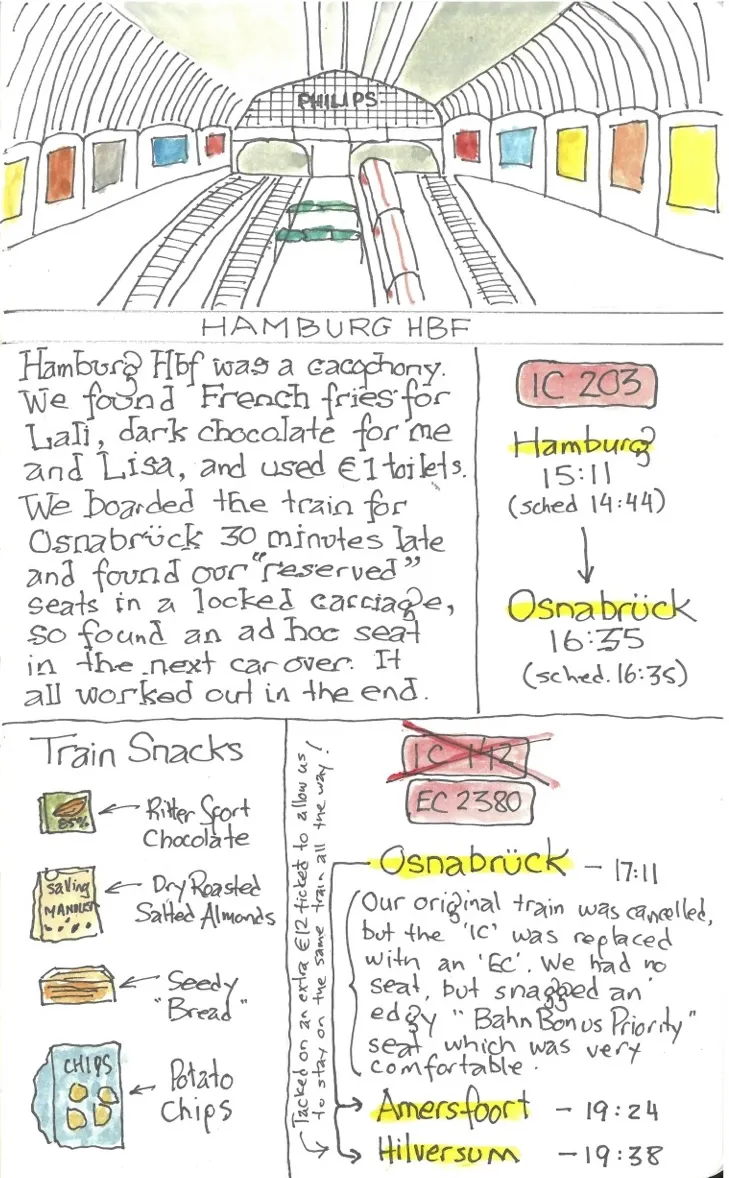 PHILIPS
HAMBURG HBF
Hamburg Hbf was a cacophony.
We found French fries for
Lali, dark chocolate for me
and Lisa, and used €1 toilets.
We boarded the train for
Osnabrück 30 minutes late
and found our "reserved"
seats in a locked carriage,
so found an ad hoc seat
in the next car over. It
all worked out in the end.
IC 203
Hamburg
15:11
(sched 14:44)
Osnabrück
16:35
(sched. 16:35)
Train Snacks
85%
Ritter Sport
Chocolate
salting
MANDLER
Dry Roasted
Salted Almonds
Seedy
"Bread"
CHIPS
Potato
Chips
Tacked on an extra €12 ticked to allow us
to stay on the same train all the way!
IC 142
EC 2380
Osnabrück - 17:11
Our original train was cancelled,
but the 'IC' was replaced
with an 'EC'. We had no
seat, but snagged an
edgy "Bahn Bonus Priority"
seat which was very
comfortable.
Amersfoort - 19:24
Hilversum - 19:38